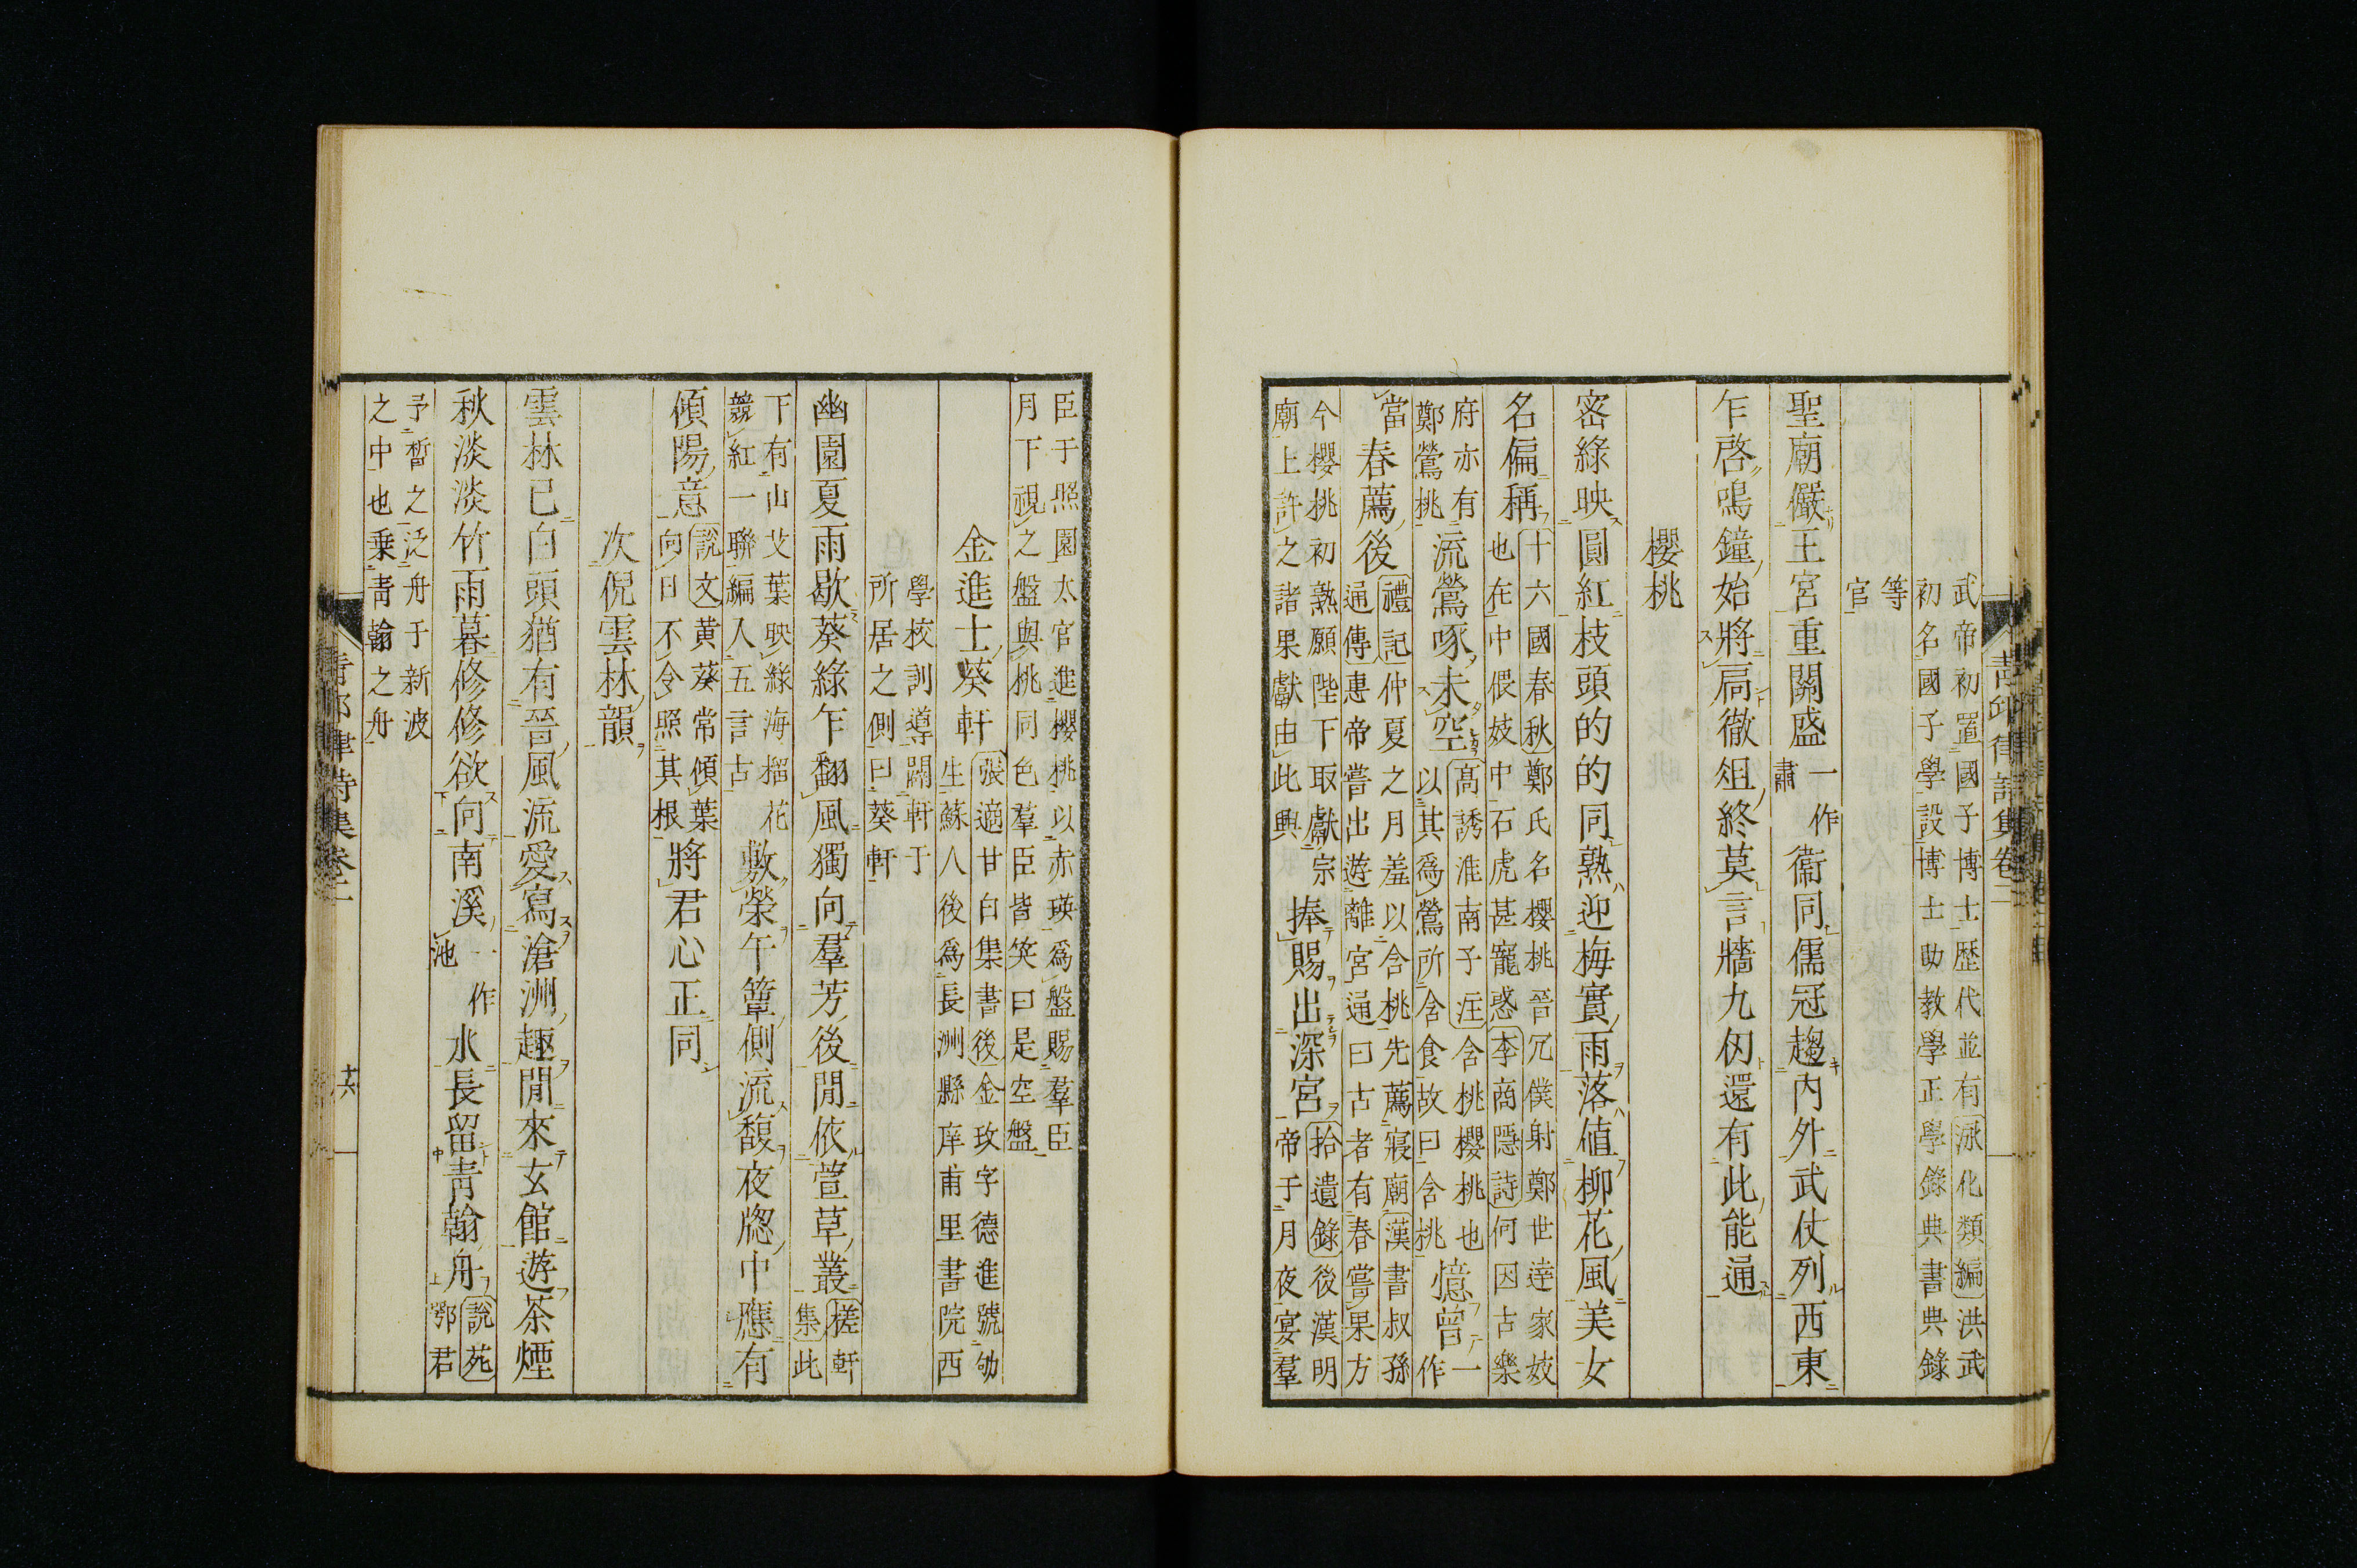 武帝初置國子博士歷代並有泳化類編洪武
初名國子學設博士助教學正學錄典書典錄
等
官
聖廟儼王宮重關盛一作肅衞同儒冠趨内外武仗列西東
乍啓鳴鐘始將扃徹俎終莫言牆九仭還有此能通
櫻桃
密綠映圓紅枝頭的的同熟迎梅實雨落値柳花風美女
名偏稱十六國春秋鄭氏名櫻桃晉冗僕射鄭世達家妓
也在中偎妓中石虎甚寵惑李商隱詩何因古樂
府亦有
鄭鶯桃流鶯啄未空高誘淮南子注含桃櫻桃也
以其爲鶯所含食故曰含桃憶曾一作
當春薦後禮記仲夏之月羞以含桃先薦寢廟漢書叔孫
通傳惠帝嘗出遊離宮通曰古者有春嘗果方
今櫻桃初熟願陛下取獻宗
廟上許之諸果獻由此興捧賜出深宮拾遺錄後漢明
帝于月夜宴羣
青邱律詩集卷二
臣于照園太官進櫻桃以赤瑛爲盤賜羣臣
月下視之盤與桃同色羣臣皆笑曰是空盤
金進士葵軒張適甘白集書後金玫字德進號劬
生蘇人後爲長洲縣庠甫里書院西
學校訓導闢軒于
所居之側曰葵軒
幽園夏雨歇葵綠乍翻風獨向羣芳後閒依萱草叢槎軒
集此
下有山艾葉映綠海榴花
競紅一聯編入五言古敷榮午簟側流馥夜牕中應有
傾陽意說文黄葵常傾葉
向日不令照其根將君心正同
次倪雲林韻
雲林已白頭猶有晉風流愛寫滄洲趣閒來玄館遊茶煙
秋淡淡竹雨暮修修欲向南溪一作池水長留青翰舟說苑
鄂君
子晳之泛舟于新波
之中也乗青翰之舟
青邱律詩集卷二
十六